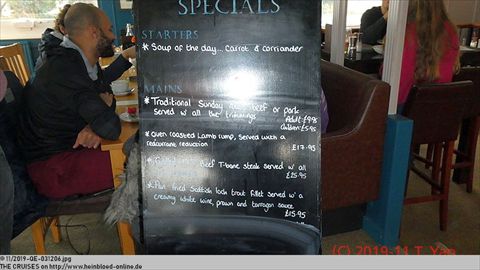 SPECIALS
STARTERS
* Soup of the day... Carrot & Corriander
MAINS
* Traditional Sunday beef or pork
served w/ all the trimmings Adult £9.95
Children £5.95
* Oven roasted Lamb rump, served with a
redcurrant reduction £17.95
* Beef T-bone steak served w/ all
£25.95
* Pan fried Scottish loch trout fillet served w/ a
creamy white wine, prawn and tarragon sauce
£15.95
(C) 2019-11 T. Yao
@11/2019-QE-031206.jpg
THE CRUISES on http://www.heinbloed-online.de